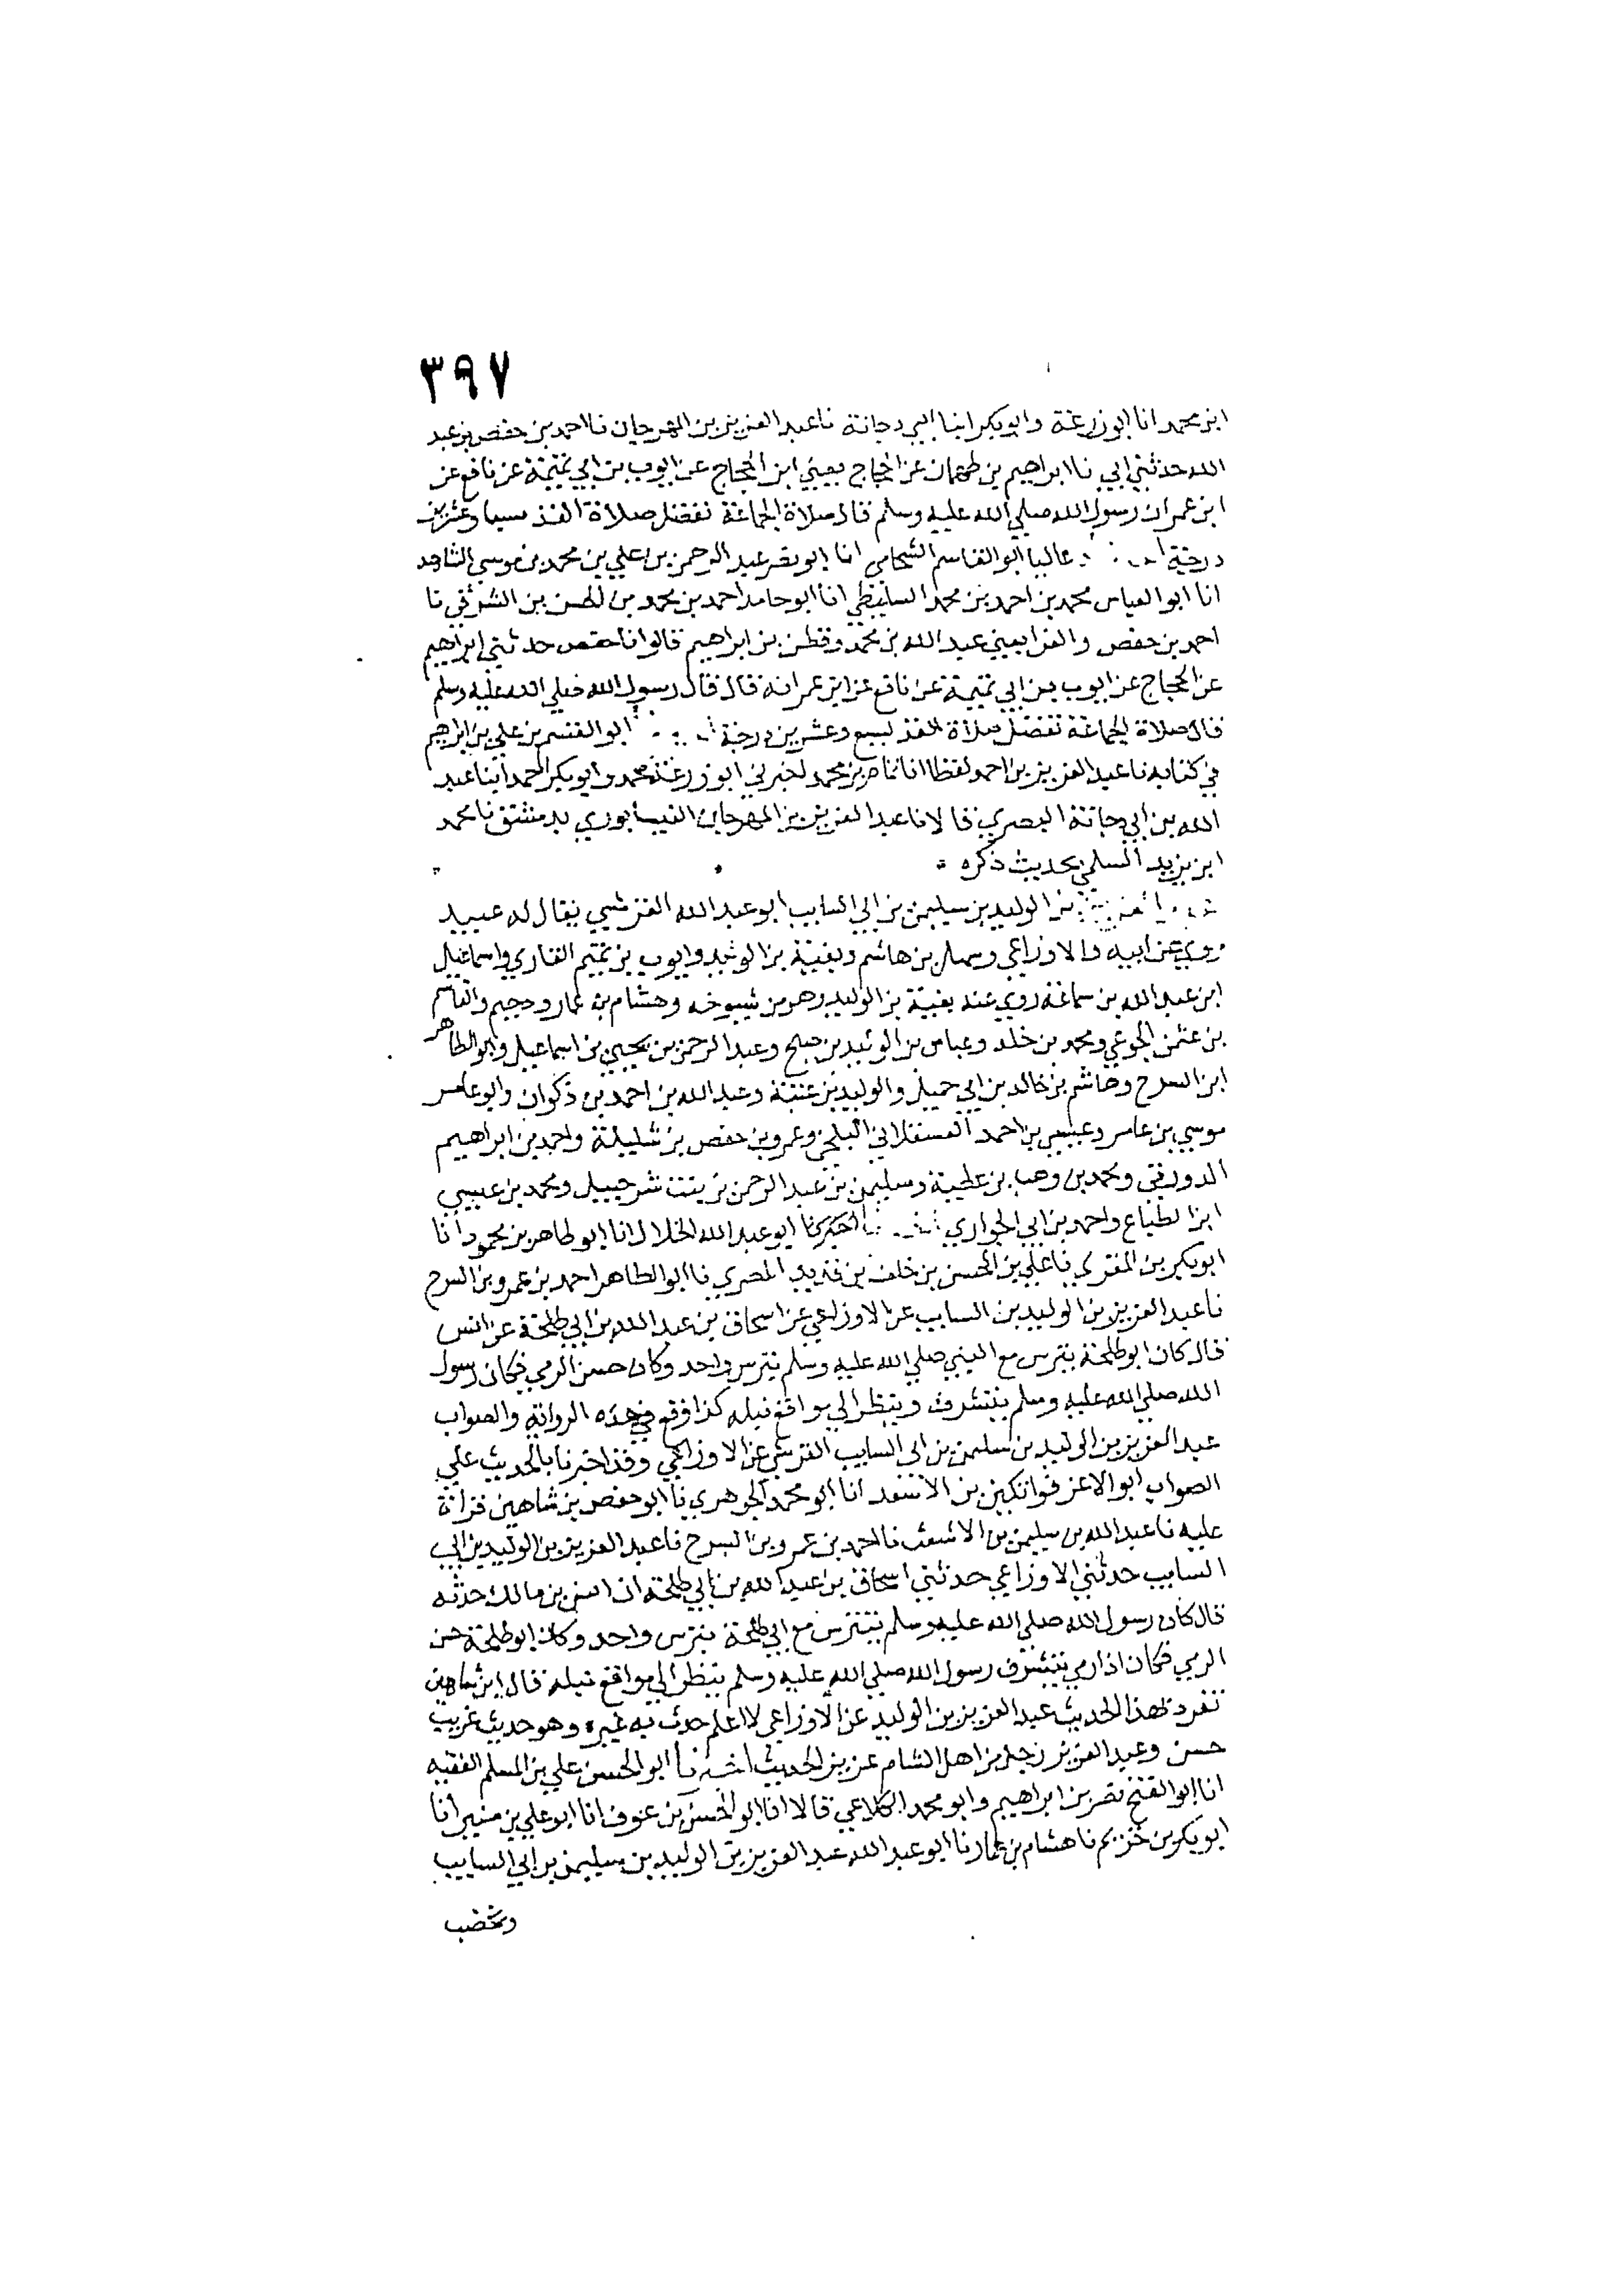 ٣٩٧
ابن محمد انا ابو زرعة وابو بكر ابنا ابي دجانة نا عبد العزيز بن المهرجان نا احمد بن حفص بن عبد
الله حدثني ابي نا ابراهيم بن طهمان عن الحجاج يعني ابن الحجاج عن ايوب بن ابي تميمة عن نافع عن
ابن عمر ان رسول الله صلي الله عليه وسلم قال صلاة الجماعة تفضل صلاة الفذ سبعا وعشرين
درجة عاليا ابو القاسم الشحامي انا ابو نصر عبد الرحمن بن علي بن محمد بن موسي الشاهد
انا ابو العباس محمد بن احمد بن محمد السليطي انا ابو حامد احمد بن محمد بن الحسن بن الشرقي نا
احمد بن حفص والفرا يعني عبد الله بن محمد وقطن بن ابراهيم قالوا نا حفص حدثني ابراهيم
عن الحجاج عن ايوب بن ابي تميمة عن نافع عن ابن عمر انه قال قال رسول الله صلي الله عليه وسلم
قال صلاة الجماعة تفضل صلاة الفذ بسبع وعشرين درجة ابو القسم بن علي بن ابراهيم
في كتابه نا عبد العزيز بن احمد لفظا انا تمام بن محمد اخبرني ابو زرعة محمد وابو بكر احمد ابنا عبد
الله بن ابي دجانة البصري قالا نا عبد العزيز بن المهرجان النيسابوري بدمشق نا محمد
ابن يزيد السلمي بحديث ذكره
بن الوليد بن سليمن بن ابي السايب ابو عبد الله القرشي يقال له عبيد
روي عن ابيه والاوزاعي وسهل بن هاشم وبقية بن الوليد وايوب بن تميم القاري واسماعيل
ابن عبد الله بن سماعة روي عنه بقية بن الوليد وهو من شيوخه وهشام بن عمار ودحيم والقاسم
بن عثمن الجوعي ومحمد بن خلد وعباس بن الوليد بن صبح وعبد الرحمن بن يحيي بن اسماعيل وابو الطاهر
ابن السرح وهاشم بن خالد بن ابي جميل والوليد بن عتبة وعبد الله بن احمد بن ذكوان وابو عامر
موسي بن عامر وعيسي بن احمد العسقلاني البلخي وعمرو بن حفص بن شليلة واحمد بن ابراهيم
الدورقي ومحمد بن وهب بن عطية وسليمن بن عبد الرحمن بن بنت شرحبيل ومحمد بن عيسي
ابن الطباع واحمد بن ابي الحواري اخبرنا ابو عبد الله الخلال انا ابو طاهر بن محمود انا
ابو بكر بن المقري نا علي بن الحسن بن خلف بن قديد المصري نا ابو الطاهر احمد بن عمرو بن السرح
نا عبد العزيز بن الوليد بن السايب عن الاوزاعي عن اسحاق بن عبد الله بن ابي طلحة عن انس
قال كان ابو طلحة يترس مع النبي صلي الله عليه وسلم بترس واحد وكان حسن الرمي فكان رسول
الله صلي الله عليه وسلم يتشرف وينظر الي مواقع نبله كذا وقع في هذه الرواية والصواب
عبد العزيز بن الوليد بن سليمن بن ابي السايب القرشي عن الاوزاعي وقد اخبرنا بالحديث علي
الصواب ابو الاعز قراتكين بن الاسعد انا ابو محمد الجوهري نا ابو حفص بن شاهين قراة
عليه نا عبد الله بن سليمن بن الاشعث نا احمد بن عمرو بن السرح نا عبد العزيز بن الوليد بن ابي
السايب حدثني الاوزاعي حدثني اسحاق بن عبد الله بن ابي طلحة ان انس بن مالك حدثه
قال كان رسول الله صلي الله عليه وسلم يتترس مع ابي طلحة بترس واحد وكان ابو طلحة حسن
الرمي فكان اذا رمي يتشرف رسول الله صلي الله عليه وسلم ينظر الي مواقع نبله قال ابن شاهين
تفرد بهذا الحديث عبد العزيز بن الوليد عن الاوزاعي لا اعلم حدث به غيره وهو حديث غريب
حسن وعبد العزيز رجل من اهل الشام عزيز الحديث ابو الحسن علي بن المسلم الفقيه
انا ابو الفتح نصر بن ابراهيم وابو محمد الكلاعي قالا انا ابو الحسن بن عوف انا ابو علي بن منير انا
ابو بكر بن خزيم نا هشام بن عمار نا ابو عبد الله عبد العزيز بن الوليد بن سليمن بن ابي السايب